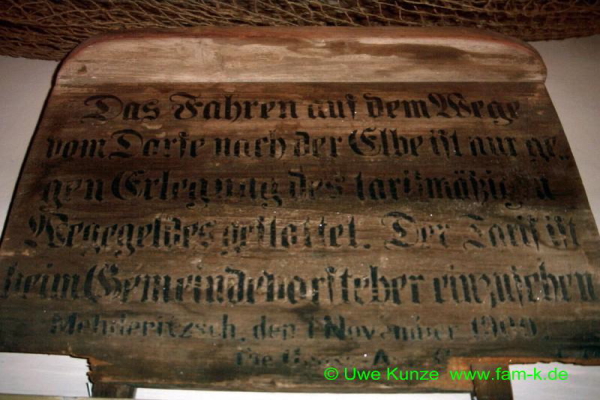 Das Fahren auf dem Wege
vom Dorfe nach der Elbe ist nur ge-
gen Erlegung des tarifmäßigen
Wegegeldes gestattet. Der Tarif ist
beim Gemeindevorsteher einzusehen
Mehderitzsch, den 1 November 1909
© Uwe Kunze www.fam-k.de